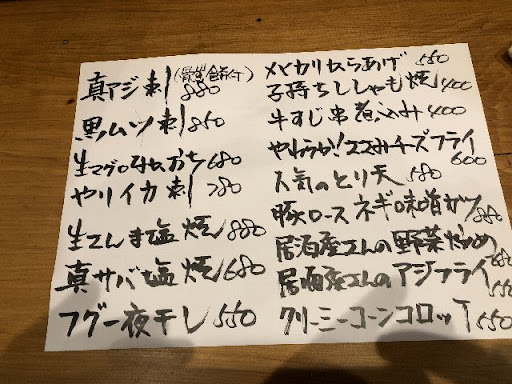 真アジ刺(骨せんべい付) 880
黒ムツ刺 850
生マグロぬたおち 680
やりイカ刺 780
生さんま塩焼 880
真サバ塩焼 680
フグ一夜干し 550
メヒカリからあげ 550
子持ちししゃも焼 400
牛すじ串煮込み 400
やわらか!ささみチーズフライ 600
人気のとり天 580
豚ロースネギ味噌 880
居酒屋さんの野菜炒め
居酒屋さんのアジフライ 550
クリーミーコーンコロッケ 550